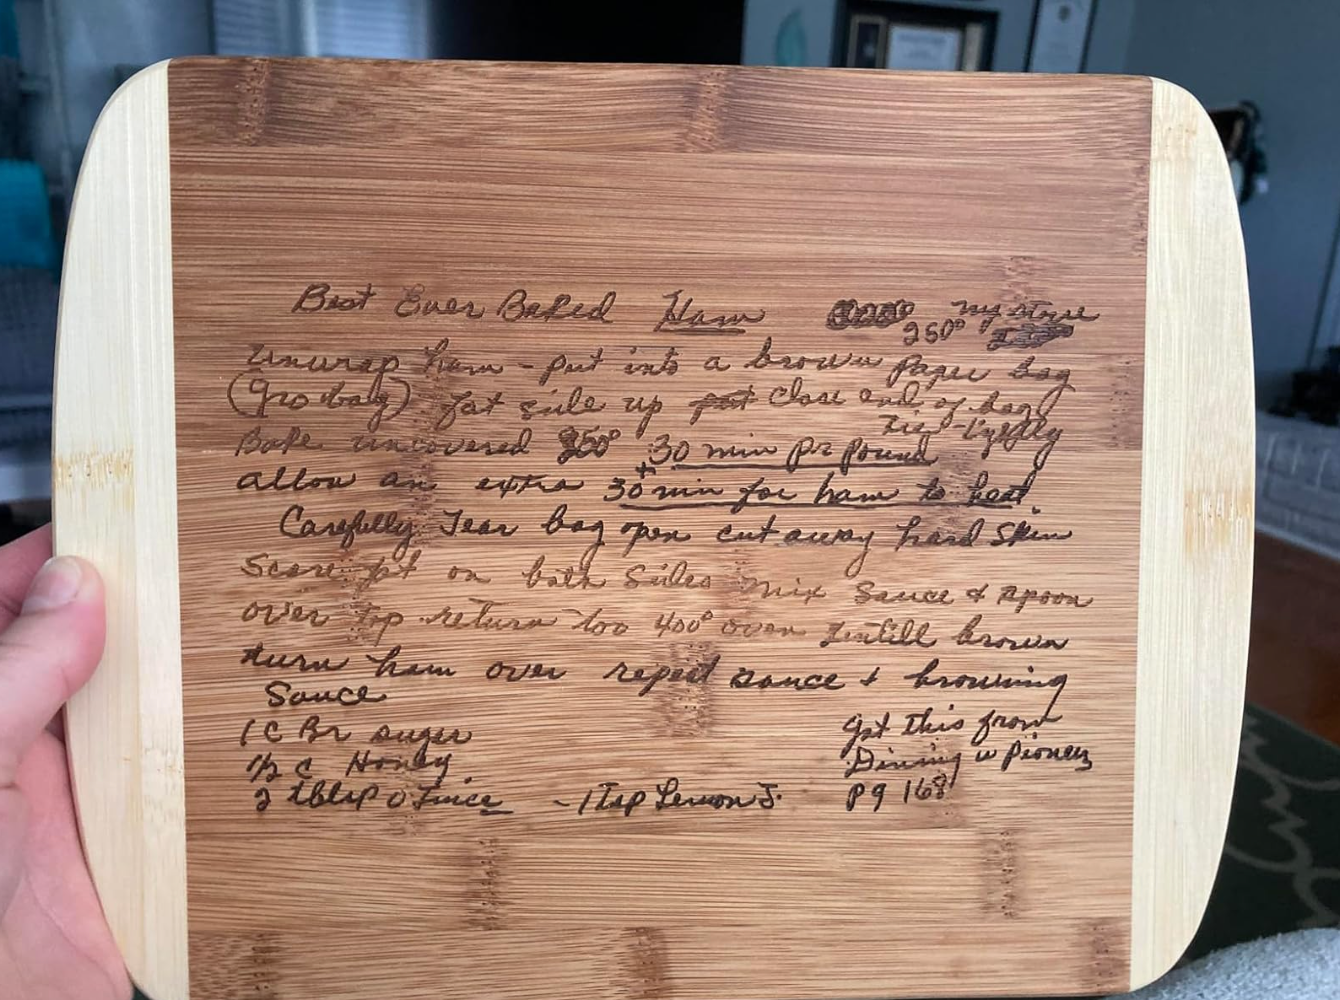 Best Ever Baked Ham my stove
250°
Unwrap ham - put into a brown paper bag
(Gro bag) fat side up put close end of bag
Tied-tightly
Bake uncovered 350° 30 min pr pound
+
allow an extra 30 min for ham to heat.
Carefully Tear bag open cut away hard skin
Score it on both sides mix sauce & spoon
over top return too 400° oven untill brown
turn ham over repeat sauce + browning
Sauce
1 C Br suger got this from
1/2 c Honey Dining w Pioneer
2 tblsp O Juice - 1 Tsp Lemon J. pg 168